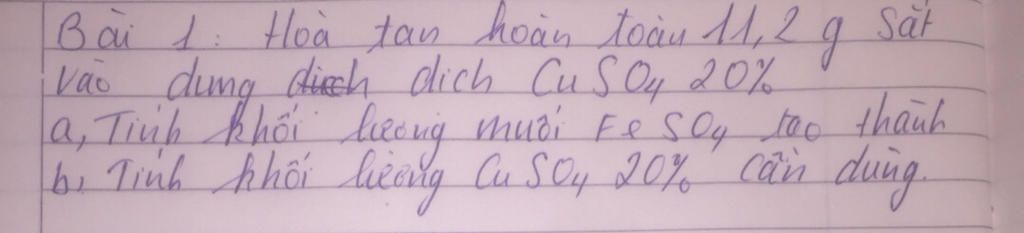 Bài 1: Hoà tan hoàn toàn 11,2 g sắt
vào dung dịch CuSO4 20%
a, Tính khối lượng muối FeSO4 tạo thành
b, Tính khối lượng CuSO4 20% cần dùng.